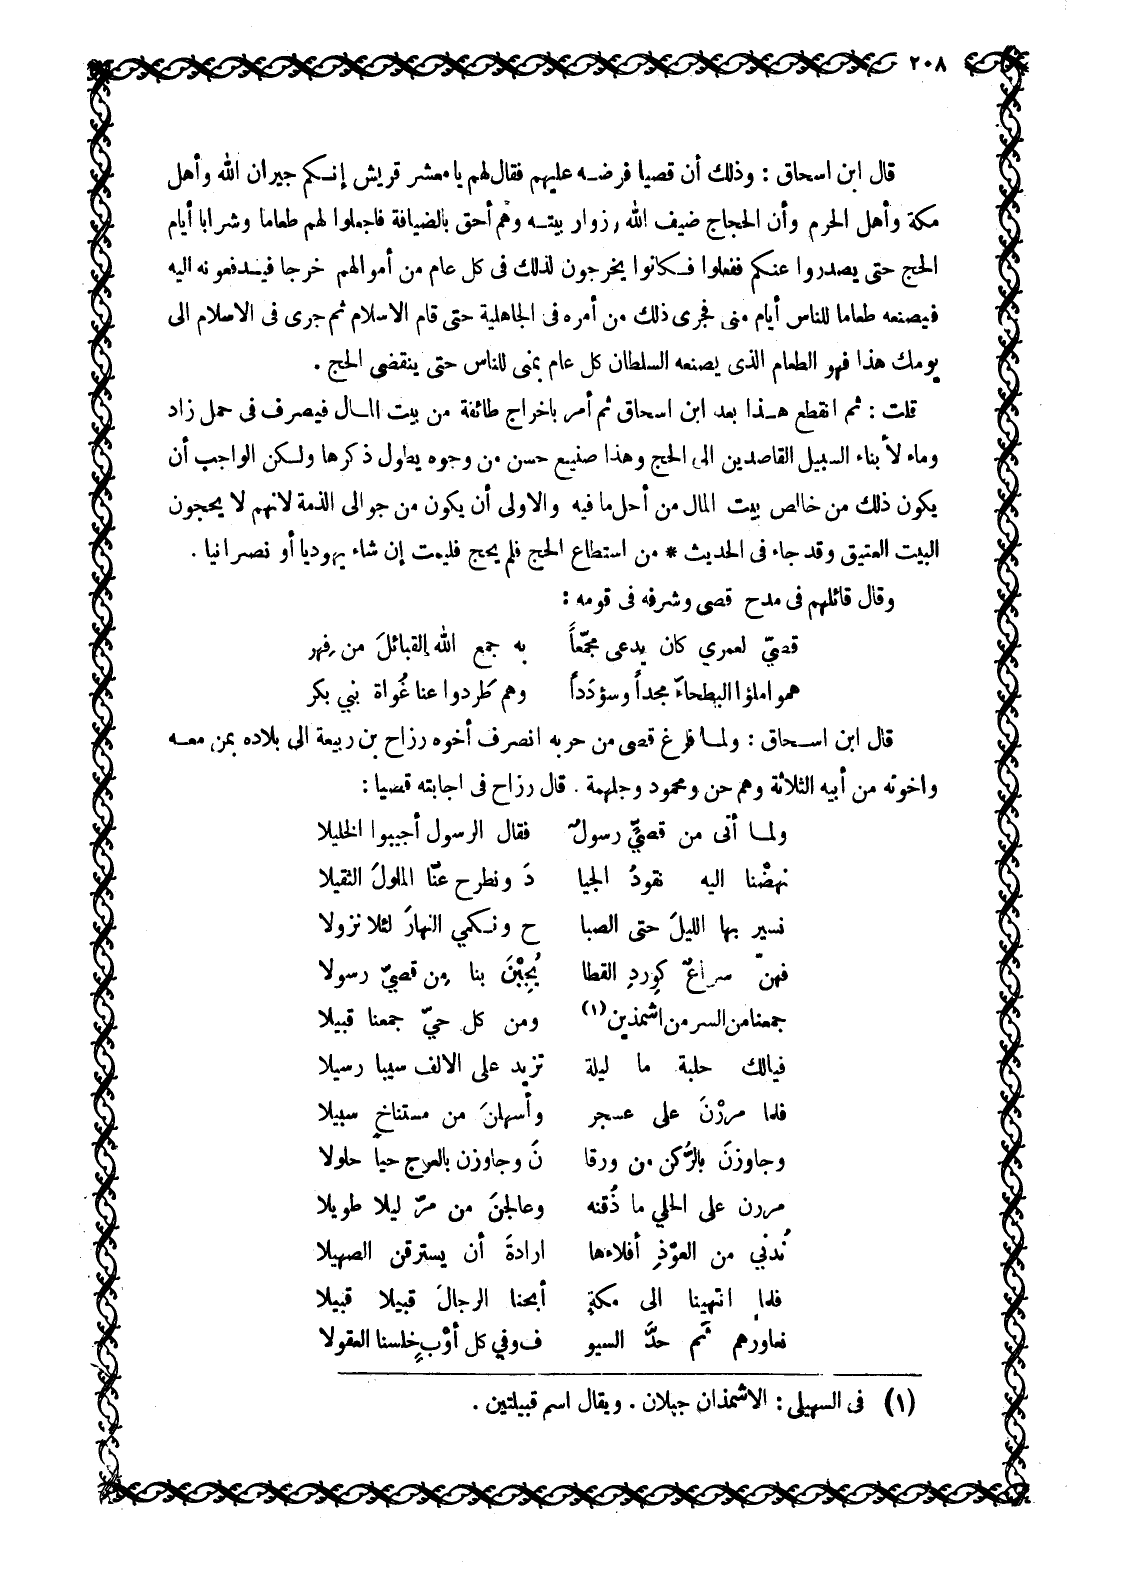 ٢٠٨
قال ابن اسحاق : وذلك أن قصيا فرضه عليهم فقال لهم يا معشر قريش إنكم جيران الله وأهل
مكة وأهل الحرم وأن الحجاج ضيف الله وزوار بيته وهم أحق بالضيافة فاجعلوا لهم طعاما وشرابا أيام
الحج حتى يصدروا عنكم ففعلوا فكانوا يخرجون لذلك فى كل عام من أموالهم خرجا فيدفعونه اليه
فيصنعه طعاما للناس أيام منى فجرى ذلك من أمره فى الجاهلية حتى قام الاسلام ثم جرى فى الاسلام الى
يومك هذا فهو الطعام الذى يصنعه السلطان كل عام بمنى للناس حتى ينقضى الحج .
قلت : ثم انقطع هذا بعد ابن اسحاق ثم أمر باخراج طائفة من بيت المال فيصرف فى حمل زاد
وماء لأبناء السبيل القاصدين الى الحج وهذا صنيع حسن من وجوه يطول ذكرها ولكن الواجب أن
يكون ذلك من خالص بيت المال من أحل ما فيه والاولى أن يكون من جوالى الذمة لانهم لا يحجون
البيت العتيق وقد جاء فى الحديث * من استطاع الحج فلم يحج فليمت إن شاء يهوديا أو نصرانيا .
وقال قائلهم فى مدح قصى وشرفه فى قومه :
قصيّ لعمري كان يدعى مجمّعاً به جمع الله القبائلَ من فِهر
همو املؤا البطحاءَ مجداً وسؤدَداً وهم طَردوا عنا غُواة بني بكر
قال ابن اسحاق : ولما فرغ قصى من حربه انصرف أخوه رزاح بن ربيعة الى بلاده بمن معه
واخوته من أبيه الثلاثة وهم حن ومحمود وجلهمة . قال رزاح فى اجابته قصيا :
ولما أتى من قصيٍّ رسولٌ فقال الرسول أجيبوا الخليلا
نهضْنا اليه نقودُ الجيا دَ ونطرح عنّا الملولَ الثقيلا
نسير بها الليلَ حتى الصبا ح ونكمي النهارَ لئلا نزولا
فهنّ سراعٌ كوِردِ القطا يُجِبْنَ بنا مِن قصيّ رسولا
جمعنا من السر من اشمذين (١) ومن كل حيّ جمعنا قبيلا
فيالك حلبة ما ليلة تزيد على الالف سيبا رسيلا
فلما مررْنَ على عسجر وأسهلنَ من مستناخٍ سبيلا
وجاوزنَ بالرُّكن من ورقا نَ وجاوزن بالعرج حياً حلولا
مررن على الحلي ما ذُقنه وعالجنَ من مرّ ليلا طويلا
نُدنّي من العوْذِ أفلاءها ارادةَ أن يسترقن الصهيلا
فلما انتهينا الى مكةٍ أبحنا الرجالَ قبيلا قبيلا
نعاورُهم ثَم حدَّ السيو ف وفي كل أوْبٍ خلسنا العقولا
(١) فى السهيلى : الاشمذان جبلان . ويقال اسم قبيلتين .